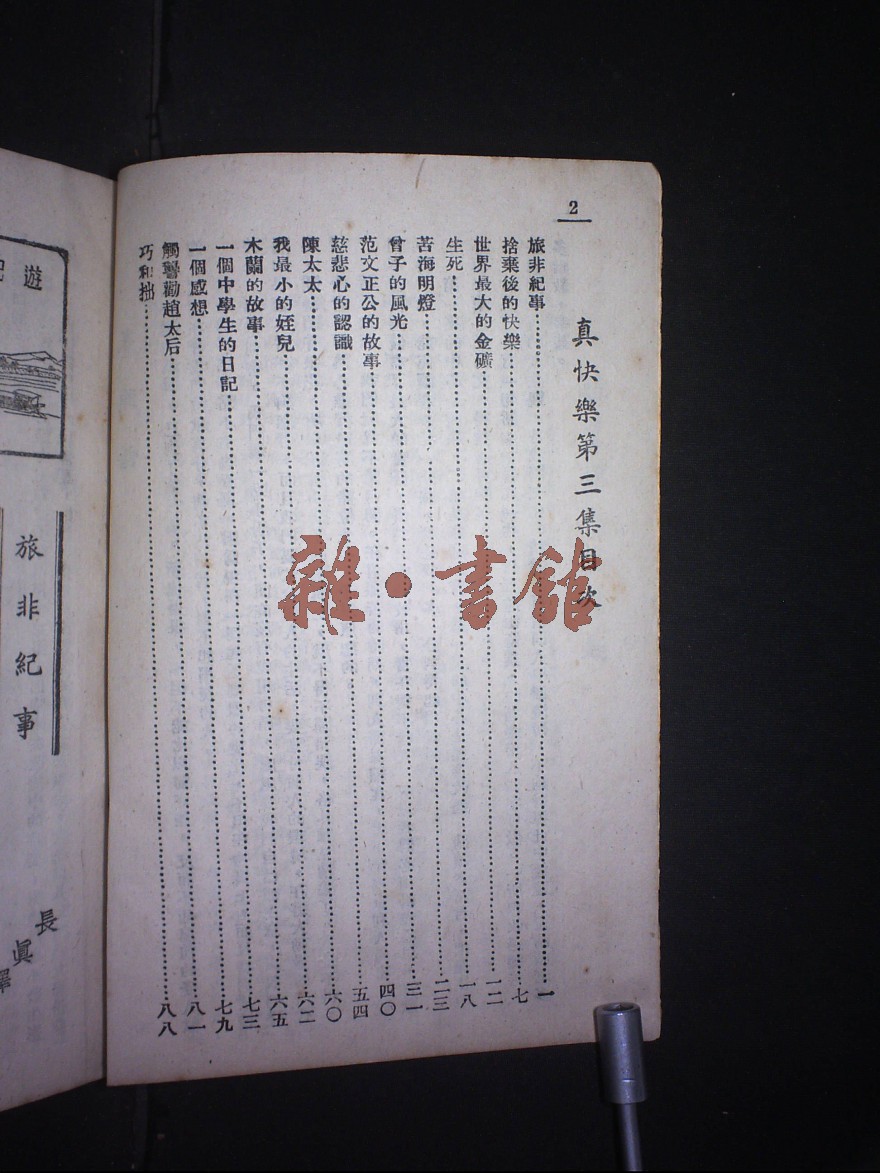 2
真快樂第三集目次
旅非紀事……一
捨棄後的快樂……七
世界最大的金礦……一二
生死……一八
苦海明燈……二三
曾子的風光……三一
范文正公的故事……四〇
慈悲心的認識……五四
陳太太……六〇
我最小的姪兒……六二
木蘭的故事……六五
一個中學生的日記……七三
一個感想……七九
觸讋勸趙太后……八一
巧和拙……八八
雜·書館
遊
旅非紀事
長眞